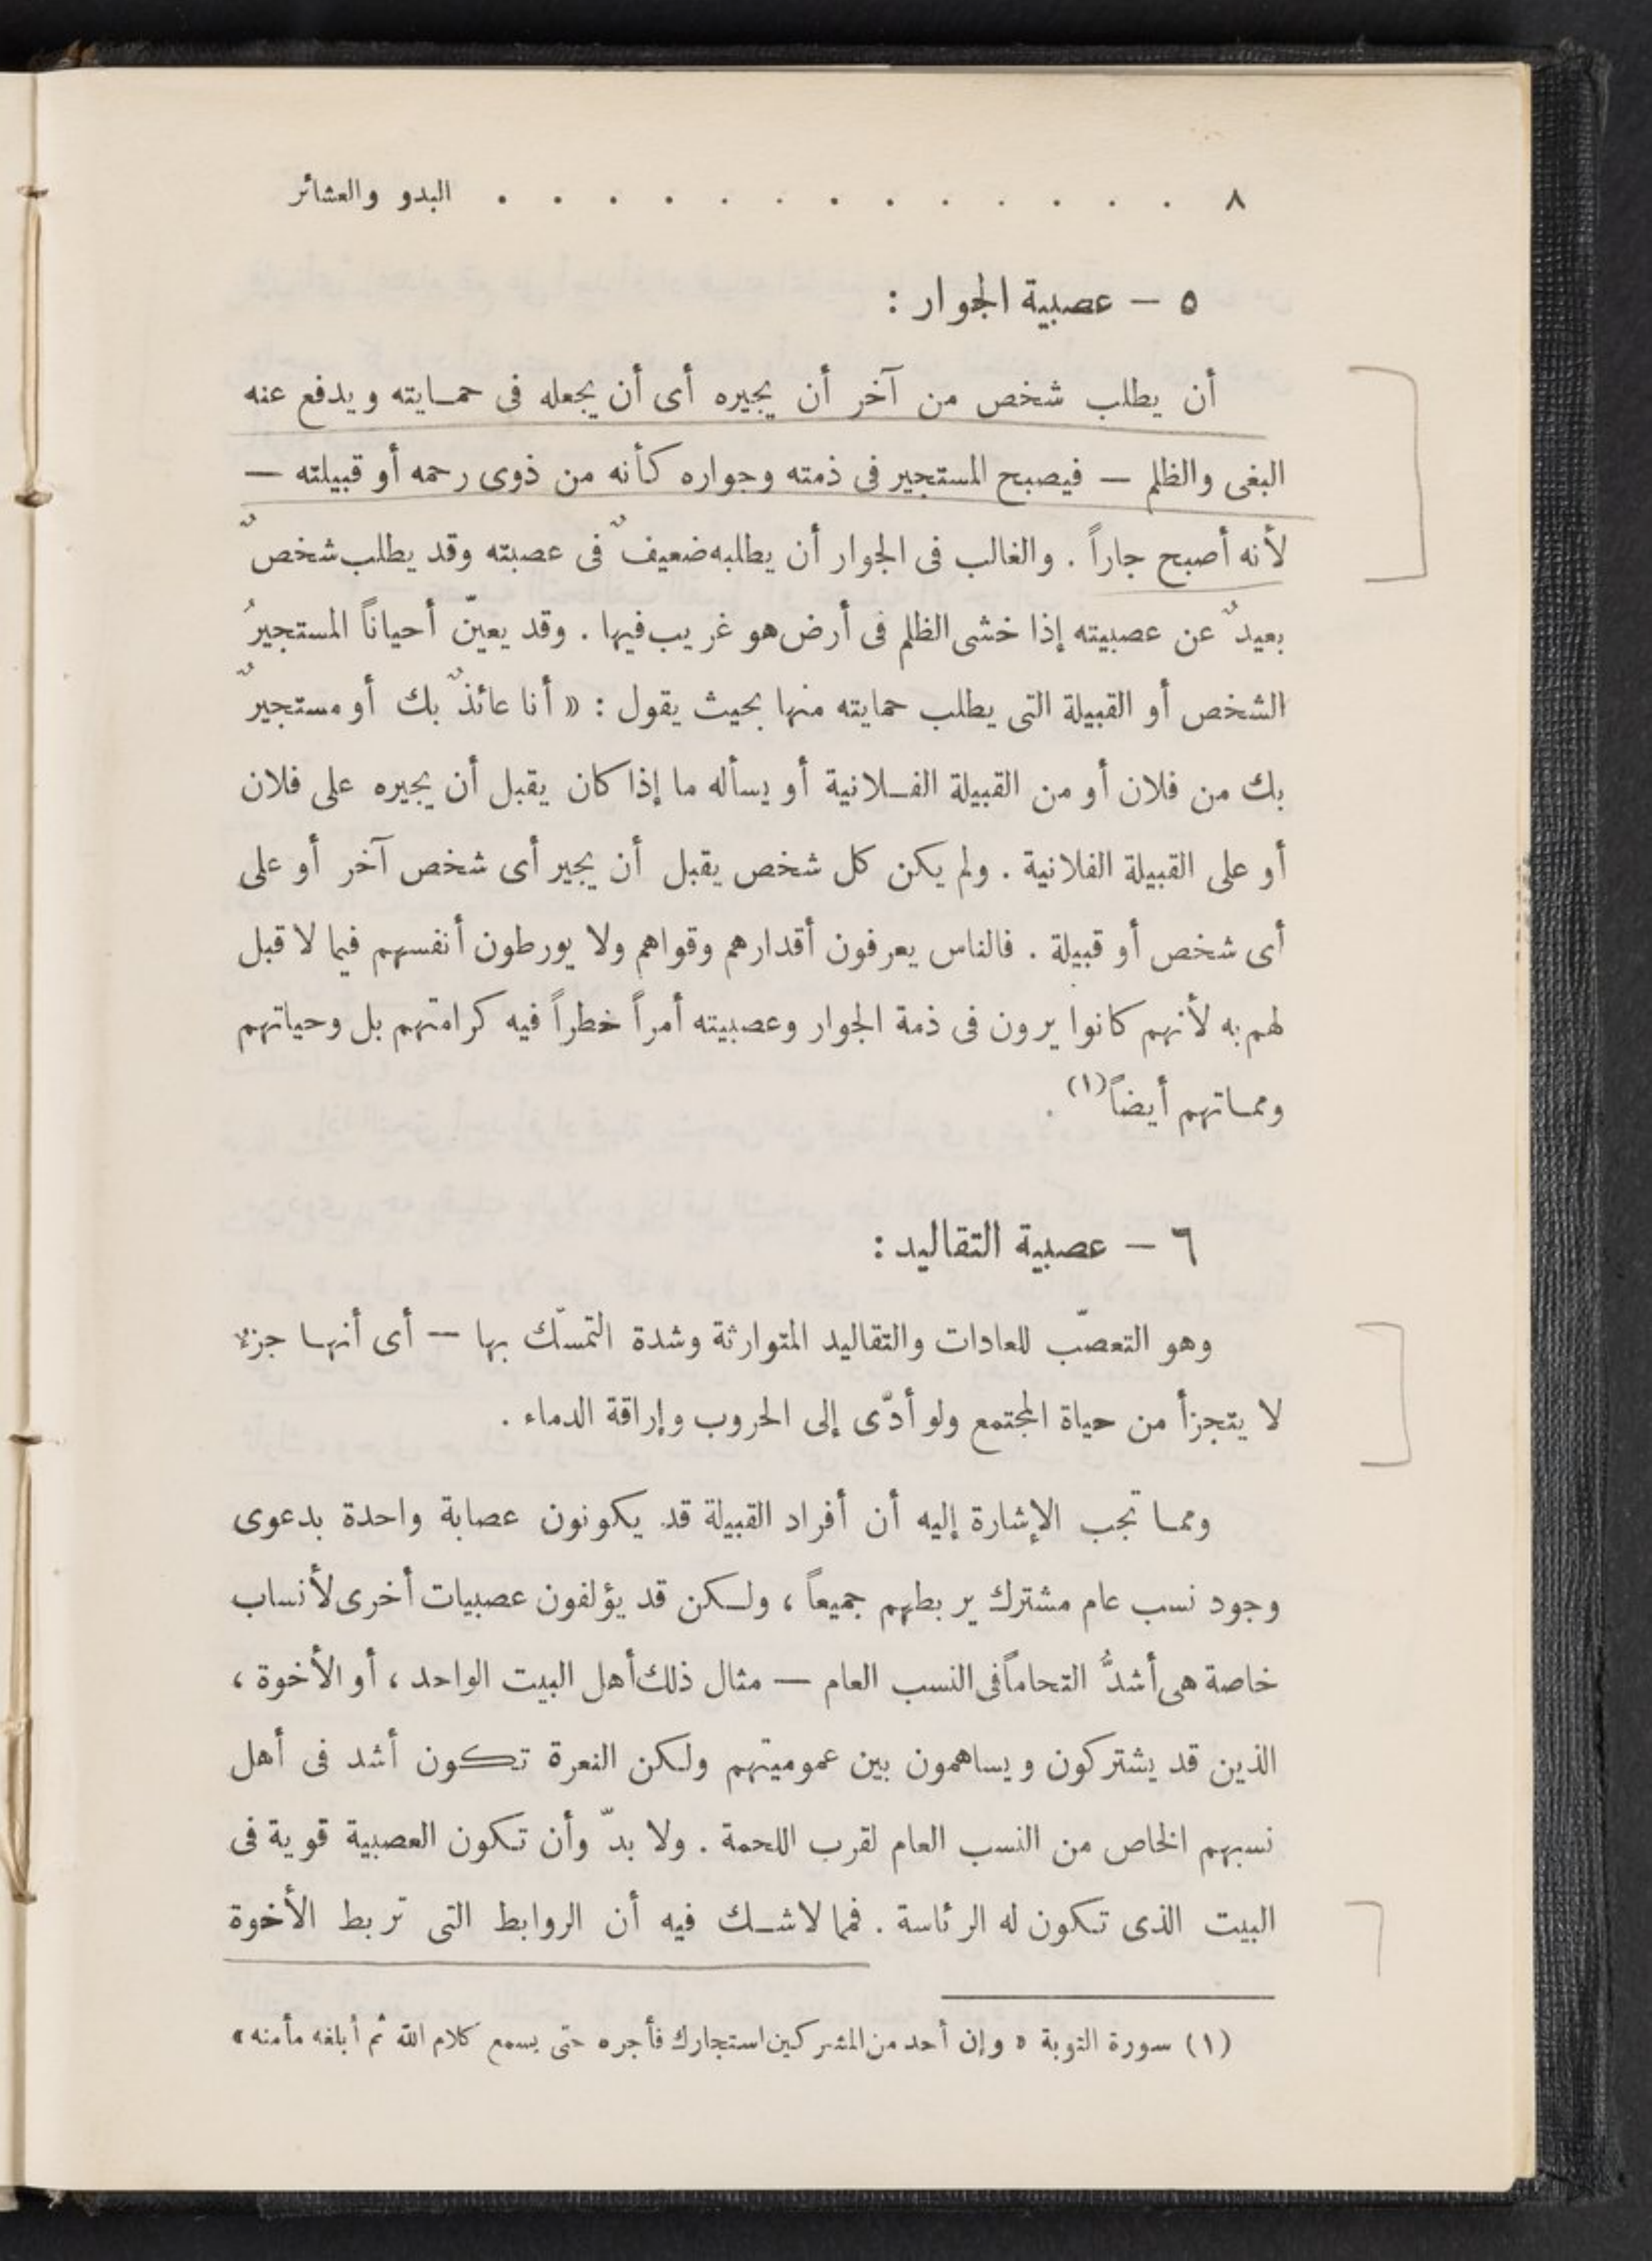 ٨ . . . . . . . . . . . . . البدو والعشائر
٥ — عصبية الجوار :
أن يطلب شخص من آخر أن يجيره أى أن يجعله فى حمـايته ويدفع عنه
البغى والظلم — فيصبح المستجير فى ذمته وجواره كأنه من ذوى رحمه أو قبيلته —
لأنه أصبح جاراً . والغالب فى الجوار أن يطلبه ضعيفٌ فى عصبته وقد يطلب شخصٌ
بعيدٌ عن عصبيته إذا خشى الظلم فى أرض هو غريب فيها . وقد يعيّن أحياناً المستجيرُ
الشخص أو القبيلة التى يطلب حمايته منها بحيث يقول : « أنا عائذٌ بك أو مستجيرٌ
بك من فلان أو من القبيلة الفـلانية أو يسأله ما إذا كان يقبل أن يجيره على فلان
أو على القبيلة الفلانية . ولم يكن كل شخص يقبل أن يجير أى شخص آخر أو على
أى شخص أو قبيلة . فالناس يعرفون أقدارهم وقواهم ولا يورطون أنفسهم فيما لا قبل
لهم به لأنهم كانوا يرون فى ذمة الجوار وعصبيته أمراً خطراً فيه كرامتهم بل وحياتهم
وممـاتهم أيضاً(١) .
٦ — عصبية التقاليد :
وهو التعصّب للعادات والتقاليد المتوارثة وشدة التمسّك بها — أى أنهـا جزء
لا يتجزأ من حياة المجتمع ولو أدّى إلى الحروب وإراقة الدماء .
وممـا تجب الإشارة إليه أن أفراد القبيلة قد يكونون عصابة واحدة بدعوى
وجود نسب عام مشترك يربطهم جميعاً ، ولـكن قد يؤلفون عصبيات أخرى لأنساب
خاصة هى أشدُّ التحاماً فى النسب العام — مثال ذلك أهل البيت الواحد ، أو الأخوة ،
الذين قد يشتركون ويساهمون بين عموميتهم ولكن النعرة تـكون أشد فى أهل
نسبهم الخاص من النسب العام لقرب اللحمة . ولا بدّ وأن تـكون العصبية قوية فى
البيت الذى تـكون له الرئاسة . فمما لا شـك فيه أن الروابط التى تربط الأخوة
(١) سورة التوبة « وإن أحد من المشركين استجارك فأجره حتى يسمع كلام الله ثم أبلغه مأمنه »